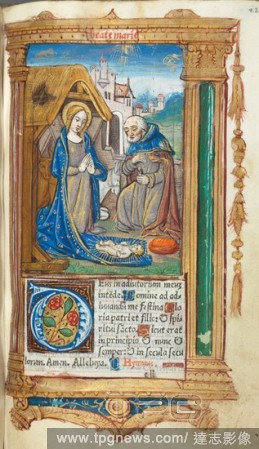 beate marie
Eus in adiutorium meum
intēde. Domine ad ad
iuuandū me festina. Glo
ria patri et filio: et spi
ritui sācto. Sicut erat
in principio et nunc et
semper: et in secula secu
lorum. Amen. Alleluya. Hymnus.
www.tpgnews.com/ 達志影像